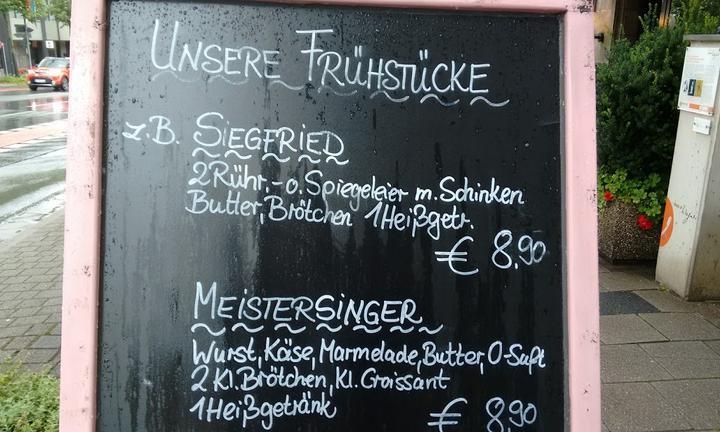 UNSERE FRÜHSTÜCKE
z.B. SIEGFRIED
2 Rühr.- o. Spiegeleier m. Schinken
Butter, Brötchen 1 Heißgetr.
€ 8.90
MEISTERSINGER
Wurst, Käse, Marmelade, Butter, O-Saft
2 Kl. Brötchen, Kl. Croissant
1 Heißgetränk € 8,90